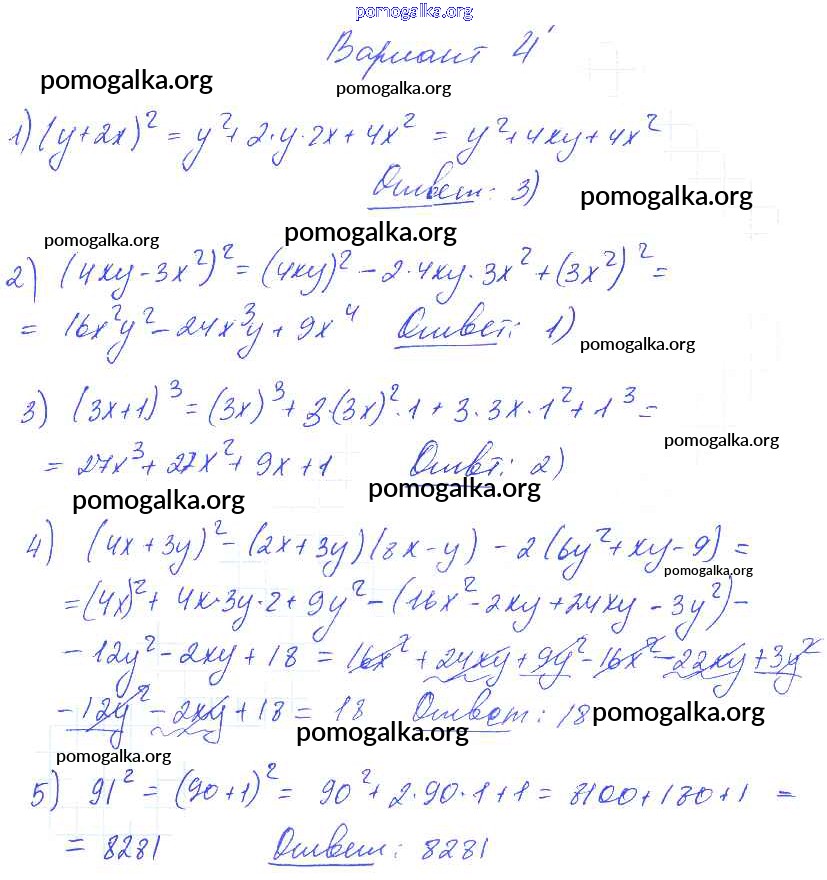 pomogalka.org
Вариант 4
pomogalka.org pomogalka.org
1) (y+2x)² = y²+2·y·2x+4x² = y²+4xy+4x²
Ответ: 3) pomogalka.org
pomogalka.org pomogalka.org
2) (4xy-3x²)² = (4xy)² - 2·4xy·3x² + (3x²)² =
= 16x²y² - 24x³y + 9x⁴ Ответ: 1)
pomogalka.org
3) (3x+1)³ = (3x)³ + 3·(3x)²·1 + 3·3x·1² + 1³ =
pomogalka.org
= 27x³ + 27x² + 9x + 1 Ответ: 2)
pomogalka.org pomogalka.org
4) (4x+3y)² - (2x+3y)(8x-y) - 2(6y²+xy-9) =
pomogalka.org
= (4x)² + 4x·3y·2 + 9y² - (16x² - 2xy + 24xy - 3y²) -
- 12y² - 2xy + 18 = 16x² + 24xy + 9y² - 16x² - 22xy + 3y²
- 12y² - 2xy + 18 = 18 Ответ: 18 pomogalka.org
pomogalka.org
pomogalka.org
5) 91² = (90+1)² = 90² + 2·90·1 + 1 = 8100+180+1 =
= 8281 Ответ: 8281